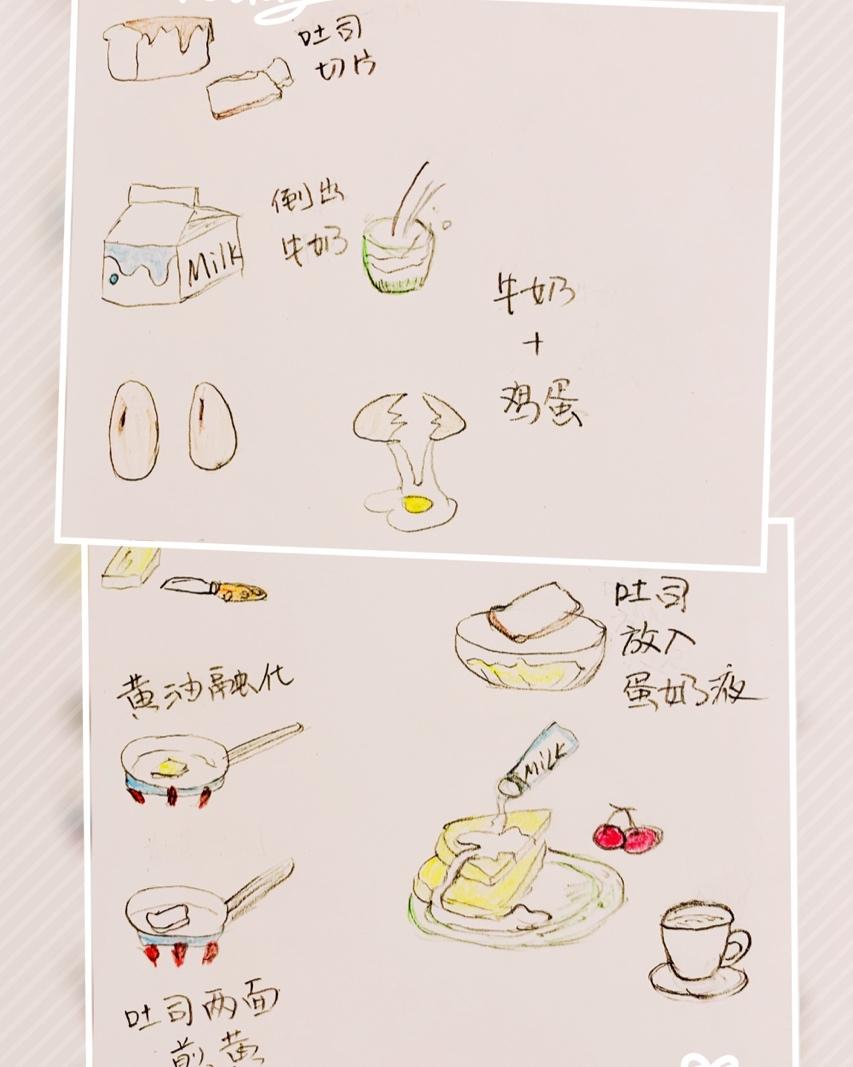 吐司
切片
倒出
牛奶
Milk
牛奶
+
鸡蛋
吐司
放入
蛋奶液
黄油融化
MiLK
吐司两面
煎黄